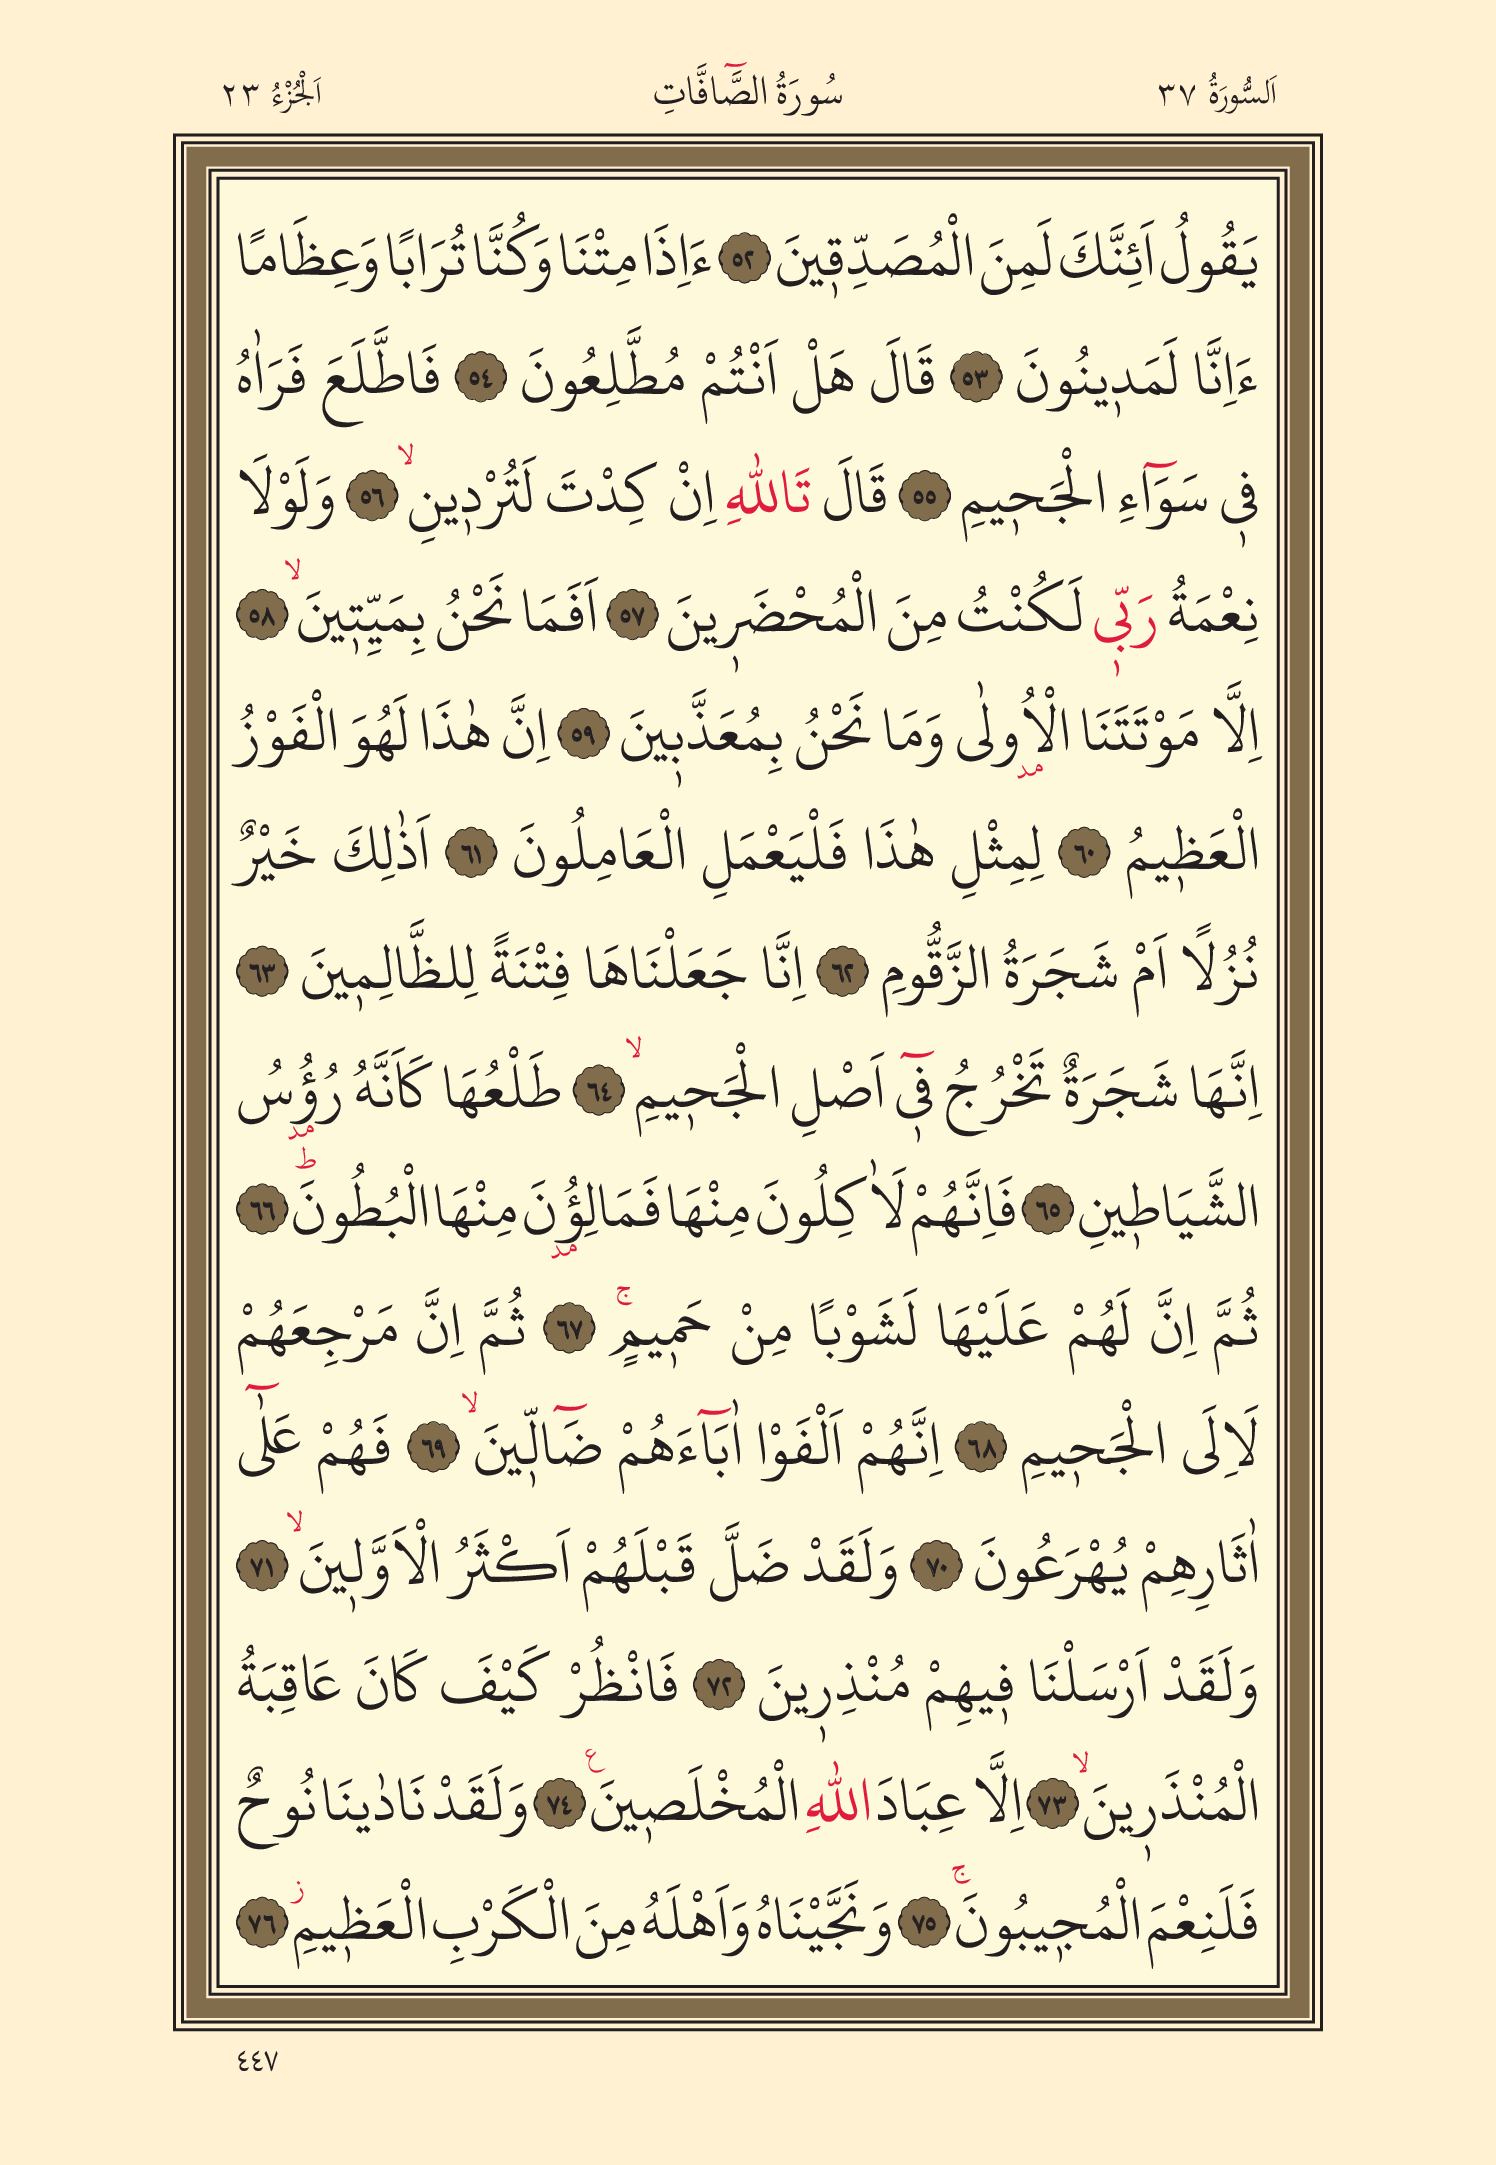 اَلسُّورَةُ ٣٧ سُورَةُ الصَّٓافَّاتِ اَلْجُزْءُ ٢٣
يَقُولُ اَئِنَّكَ لَمِنَ الْمُصَدِّقٖينَ ٥٢ ءَاِذَا مِتْنَا وَكُنَّا تُرَابًا وَعِظَامًا
ءَاِنَّا لَمَدٖينُونَ ٥٣ قَالَ هَلْ اَنْتُمْ مُطَّلِعُونَ ٥٤ فَاطَّلَعَ فَرَاٰهُ
فٖي سَوَٓاءِ الْجَحٖيمِ ٥٥ قَالَ تَاللّٰهِ اِنْ كِدْتَ لَتُرْدٖينِ ۙ ٥٦ وَلَوْلَا
نِعْمَةُ رَبّٖي لَكُنْتُ مِنَ الْمُحْضَرٖينَ ٥٧ اَفَمَا نَحْنُ بِمَيِّتٖينَ ۙ ٥٨
اِلَّا مَوْتَتَنَا الْاُو۫لٰى وَمَا نَحْنُ بِمُعَذَّبٖينَ ٥٩ اِنَّ هٰذَا لَهُوَ الْفَوْزُ
الْعَظٖيمُ ٦٠ لِمِثْلِ هٰذَا فَلْيَعْمَلِ الْعَامِلُونَ ٦١ اَذٰلِكَ خَيْرٌ
نُزُلًا اَمْ شَجَرَةُ الزَّقُّومِ ٦٢ اِنَّا جَعَلْنَاهَا فِتْنَةً لِلظَّالِمٖينَ ٦٣
اِنَّهَا شَجَرَةٌ تَخْرُجُ فٖٓي اَصْلِ الْجَحٖيمِ ۙ ٦٤ طَلْعُهَا كَاَنَّهُ رُؤُ۫سُ
الشَّيَاطٖينِ ٦٥ فَاِنَّهُمْ لَاٰكِلُونَ مِنْهَا فَمَالِؤُ۫نَ مِنْهَا الْبُطُونَ ؕ ٦٦
ثُمَّ اِنَّ لَهُمْ عَلَيْهَا لَشَوْبًا مِنْ حَمٖيمٍ ۚ ٦٧ ثُمَّ اِنَّ مَرْجِعَهُمْ
لَاِلَى الْجَحٖيمِ ٦٨ اِنَّهُمْ اَلْفَوْا اٰبَٓاءَهُمْ ضَٓالّٖينَ ۙ ٦٩ فَهُمْ عَلٰٓى
اٰثَارِهِمْ يُهْرَعُونَ ٧٠ وَلَقَدْ ضَلَّ قَبْلَهُمْ اَكْثَرُ الْاَوَّلٖينَ ۙ ٧١
وَلَقَدْ اَرْسَلْنَا فٖيهِمْ مُنْذِرٖينَ ٧٢ فَانْظُرْ كَيْفَ كَانَ عَاقِبَةُ
الْمُنْذَرٖينَ ۙ ٧٣ اِلَّا عِبَادَ اللّٰهِ الْمُخْلَصٖينَ ع ٧٤ وَلَقَدْ نَادٰينَا نُوحٌ
فَلَنِعْمَ الْمُجٖيبُونَ ۚ ٧٥ وَنَجَّيْنَاهُ وَاَهْلَهُ مِنَ الْكَرْبِ الْعَظٖيمِ ز ٧٦
٤٤٧